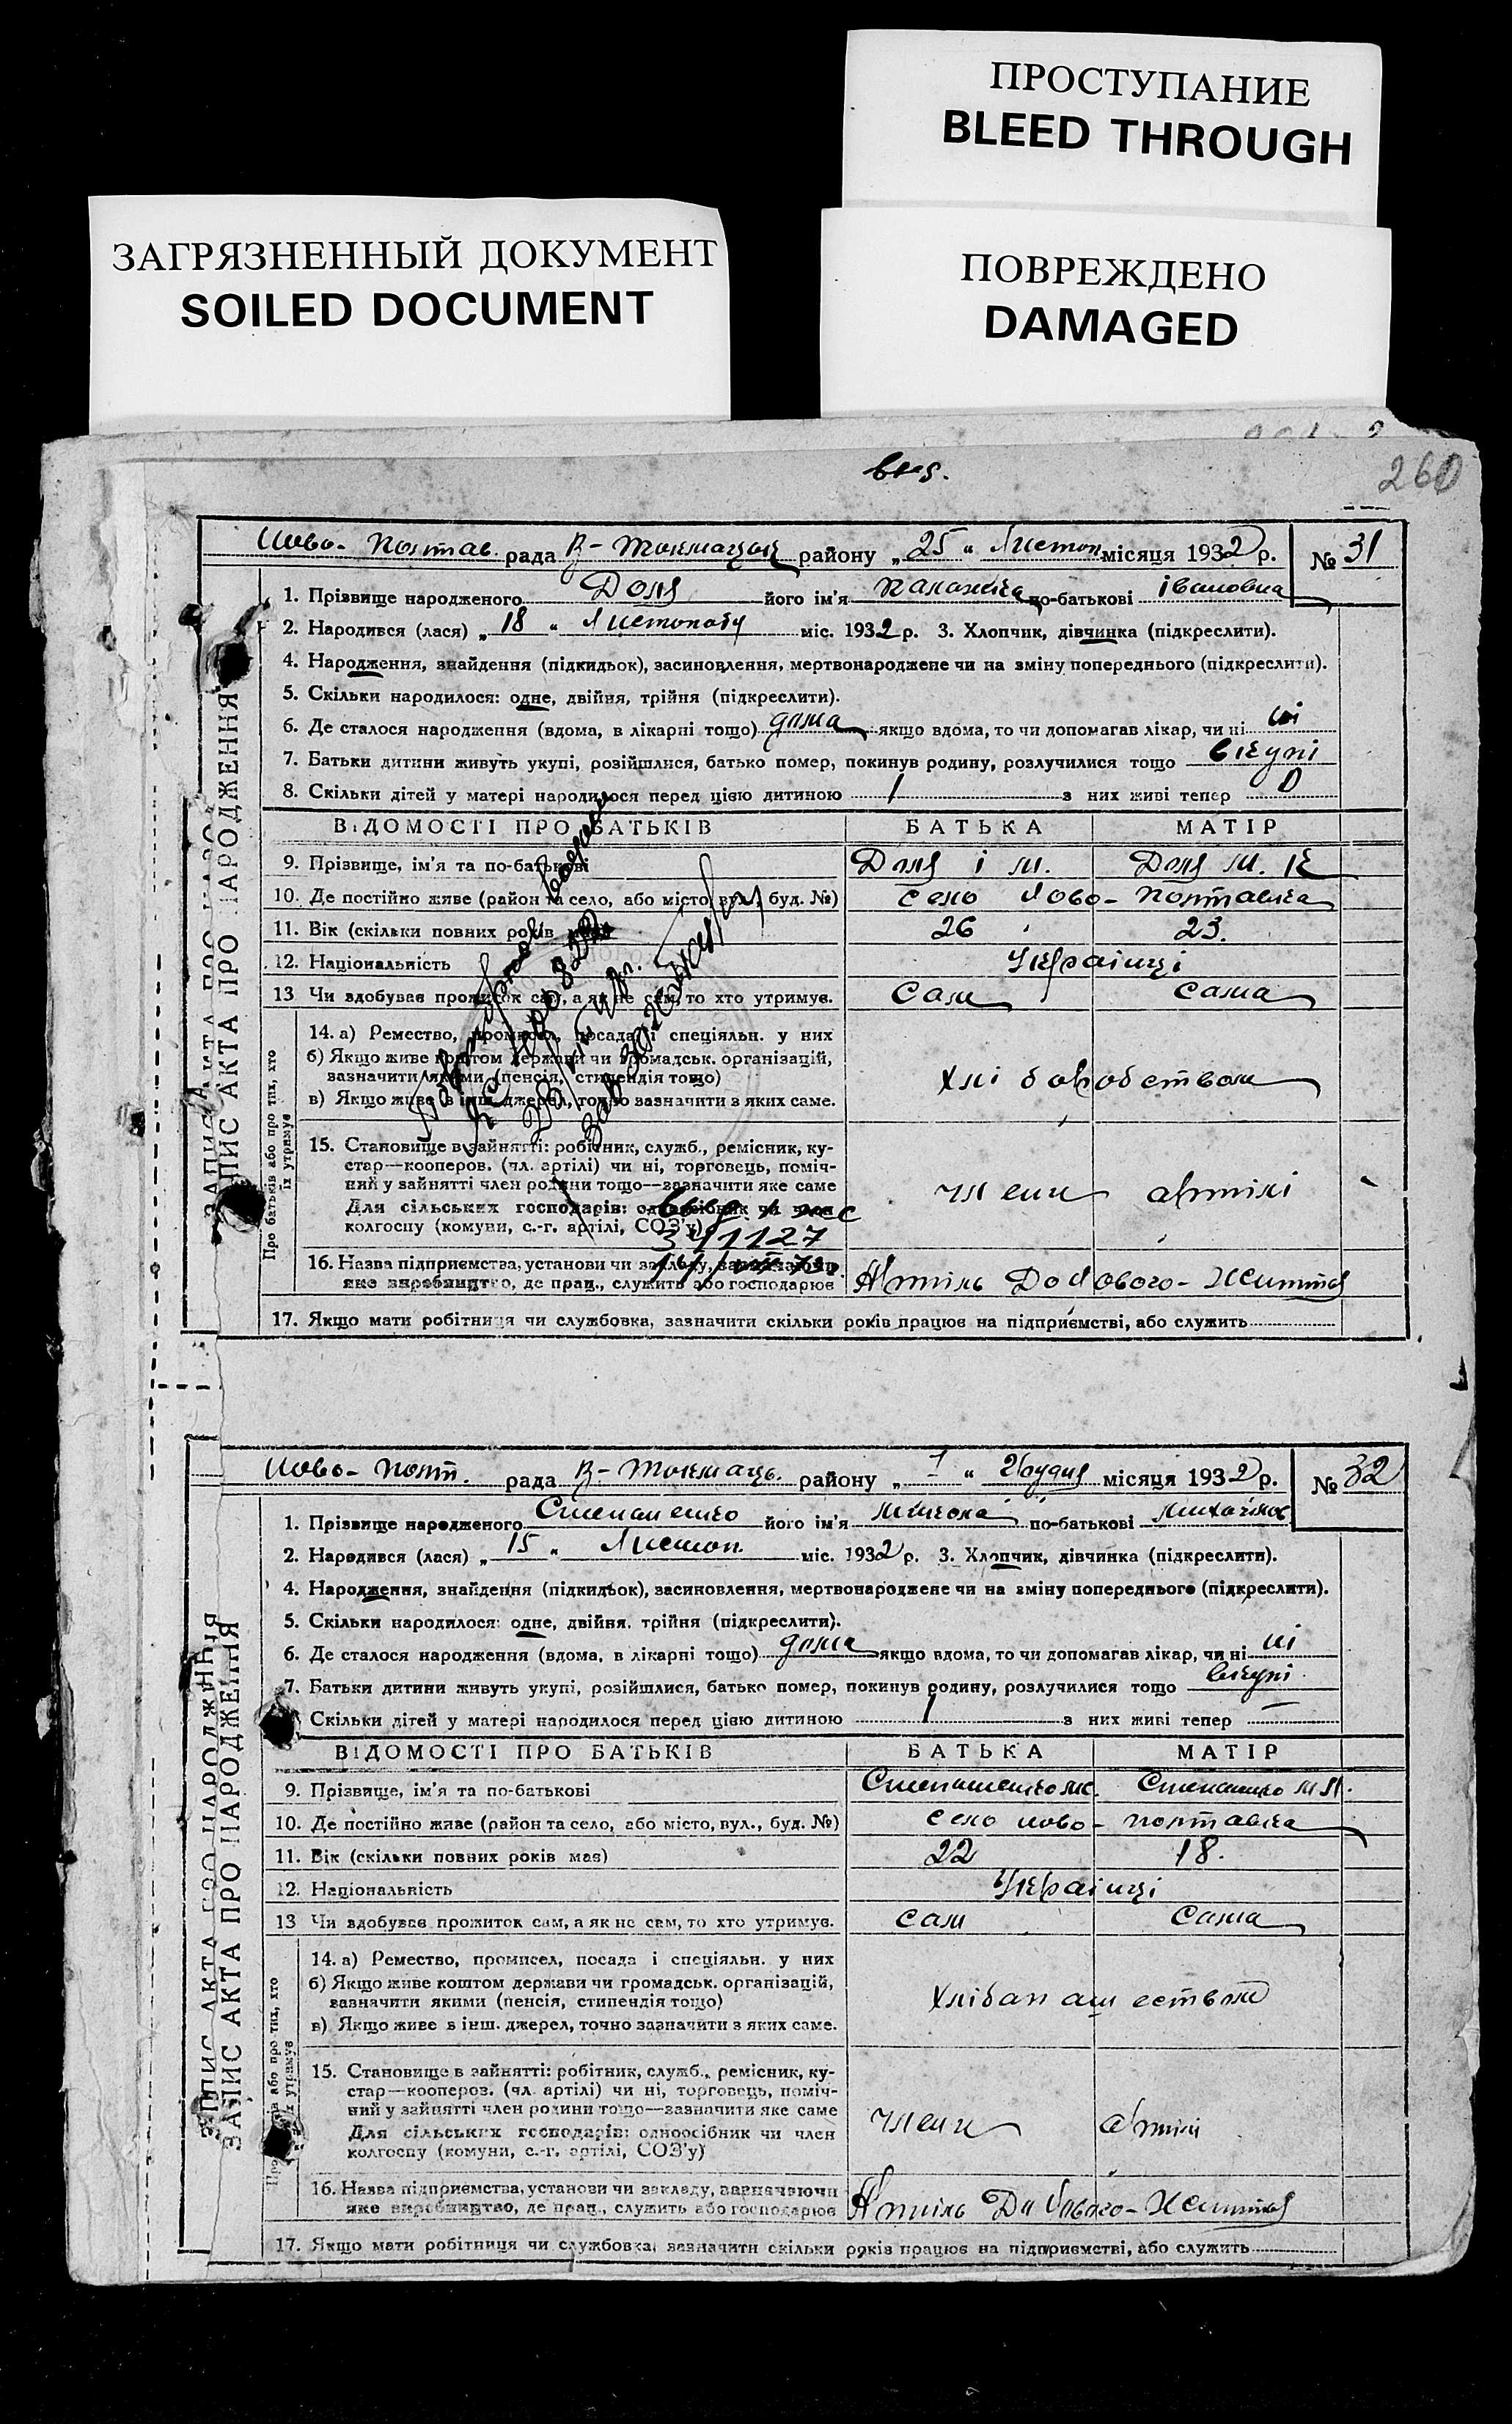 ПРОСТУПАНИЕ
BLEED THROUGH
ЗАГРЯЗНЕННЫЙ ДОКУМЕНТ
SOILED DOCUMENT
ПОВРЕЖДЕНО
DAMAGED
260
Ново- Полтав. рада В-Токмацьк району „25“ Листоп місяця 1932 р. № 31
1. Прізвище народженого Доля його ім'я Палажка по-батькові Івановна
2. Народився (лася) „18“ Листопаду міс. 1932 р. 3. Хлопчик, дівчинка (підкреслити).
4. Народження, знайдення (підкидьок), засиновлення, мертвонароджене чи на зміну попереднього (підкреслити).
5. Скільки народилося: одне, двійня, трійня (підкреслити).
6. Де сталося народження (вдома, в лікарні тощо) дома якщо вдома, то чи допомагав лікар, чи ні ні
7. Батьки дитини живуть укупі, розійшлися, батько помер, покинув родину, розлучилися тощо вкупі
8. Скільки дітей у матері народилося перед цією дитиною 1 з них живі тепер 0
ВІДОМОСТІ ПРО БАТЬКІВ БАТЬКА МАТІР
9. Прізвище, ім'я та по-батькові Доля І М. Доля М. К
10. Де постійно живе (район та село, або місто, вул., буд. №) село Ново- Полтавка
11. Вік (скільки повних років має) 26 23.
12. Національність Українці
13 Чи здобуває прожиток сам, а як не сам, то хто утримує. Сам Сама
14. а) Ремество, промисел, посада і спеціяльн. у них
б) Якщо живе коштом держави чи громадськ. організацій,
зазначити якими (пенсія, стипендія тощо)
в) Якщо живе в інш. джерел, точно зазначити з яких саме.
Хліборобством
15. Становище в зайнятті: робітник, служб., ремісник, ку-
стар—кооперов. (чл. артілі) чи ні, торговець, поміч-
ний у зайнятті член родини тощо—зазначити яке саме
Для сільських господарів: одноосібник чи член
колгоспу (комуни, с.-г. артілі, СОЗ'у)
члени артілі
341127
16. Назва підприємства, установи чи закладу, зазначаючи
яке виробництво, де прац., служить або господарює Артіль Нового-Життя
17. Якщо мати робітниця чи службовка, зазначити скільки років працює на підприємстві, або служить
ЗАПИС АКТА ПРО НАРОДЖЕННЯ
Про батьків або про тих, хто
їх утримує
Ново- Полт. рада В-Токмаць. району „1“ Грудня місяця 1932 р. № 32
1. Прізвище народженого Степаненко його ім'я Микола по-батькові Михайлов
2. Народився (лася) „15“ Листоп. міс. 1932 р. 3. Хлопчик, дівчинка (підкреслити).
4. Народження, знайдення (підкидьок), засиновлення, мертвонароджене чи на зміну попереднього (підкреслити).
5. Скільки народилося: одне, двійня, трійня (підкреслити).
6. Де сталося народження (вдома, в лікарні тощо) дома якщо вдома, то чи допомагав лікар, чи ні ні
7. Батьки дитини живуть укупі, розійшлися, батько помер, покинув родину, розлучилися тощо вкупі
Скільки дітей у матері народилося перед цією дитиною 1 з них живі тепер —
ВІДОМОСТІ ПРО БАТЬКІВ БАТЬКА МАТІР
9. Прізвище, ім'я та по-батькові Степаненко
10. Де постійно живе (район та село, або місто, вул., буд. №) село Ново- Полтавка
11. Вік (скільки повних років має) 22 18.
12. Національність Українці
13 Чи здобуває прожиток сам, а як не сам, то хто утримує. Сам Сама
14. а) Ремество, промисел, посада і спеціяльн. у них
б) Якщо живе коштом держави чи громадськ. організацій,
зазначити якими (пенсія, стипендія тощо)
в) Якщо живе в інш. джерел, точно зазначити з яких саме.
15. Становище в зайнятті: робітник, служб., ремісник, ку-
стар—кооперов. (чл. артілі) чи ні, торговець, поміч-
ний у зайнятті член родини тощо—зазначити яке саме
Для сільських господарів: одноосібник чи член
колгоспу (комуни, с.-г. артілі, СОЗ'у)
члени артілі
16. Назва підприємства, установи чи закладу, зазначаючи
яке виробництво, де прац., служить або господарює Артіль Нового-Життя
17. Якщо мати робітниця чи службовка, зазначити скільки років працює на підприємстві, або служить
ЗАПИС АКТА ПРО НАРОДЖЕННЯ